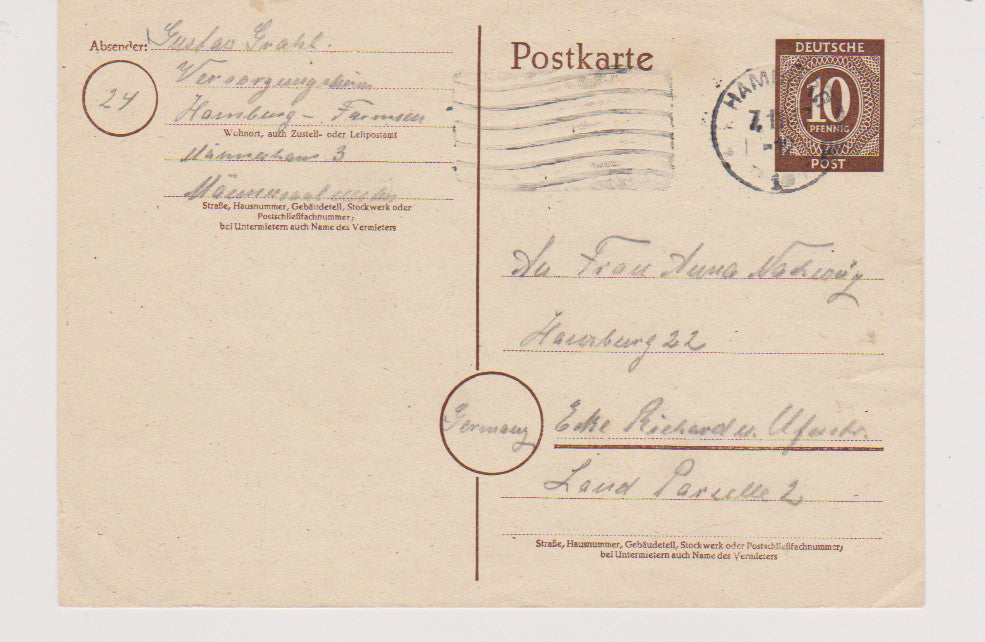 Absender: Gustav Grahl.
24
Versorgungsheim
Hamburg - Farmsen
Wohnort, auch Zustell- oder Leitpostamt
3
Straße, Hausnummer, Gebäudeteil, Stockwerk oder
Postschließfachnummer;
bei Untermietern auch Name des Vermieters
Postkarte
DEUTSCHE
10
PFENNIG
POST
HAMBURG
1
An Frau Anna
Hamburg 22
Germany
Ecke Richard u. Uferstr.
Land Parzelle 2
Straße, Hausnummer, Gebäudeteil, Stockwerk oder Postschließfachnummer;
bei Untermietern auch Name des Vermieters